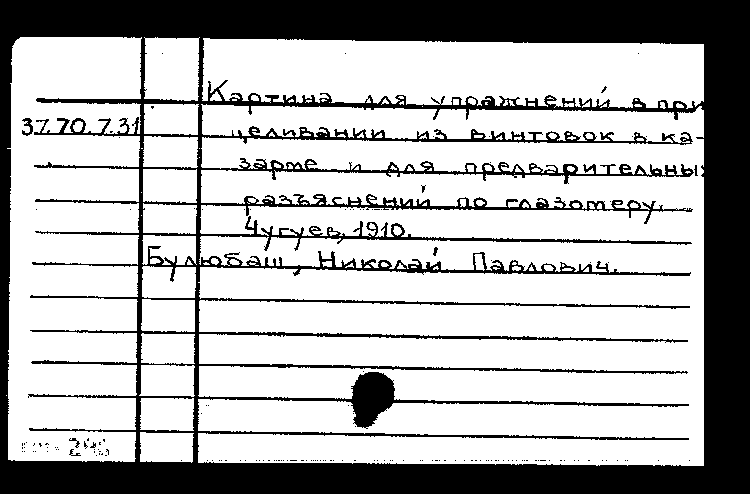 Картина для упражнений в при
37.70.7.31 целивании из винтовок в ка-
зарме и для предварительных
разъяснений по глазомеру.
Чугуев, 1910.
Булюбаш, Николай Павлович.